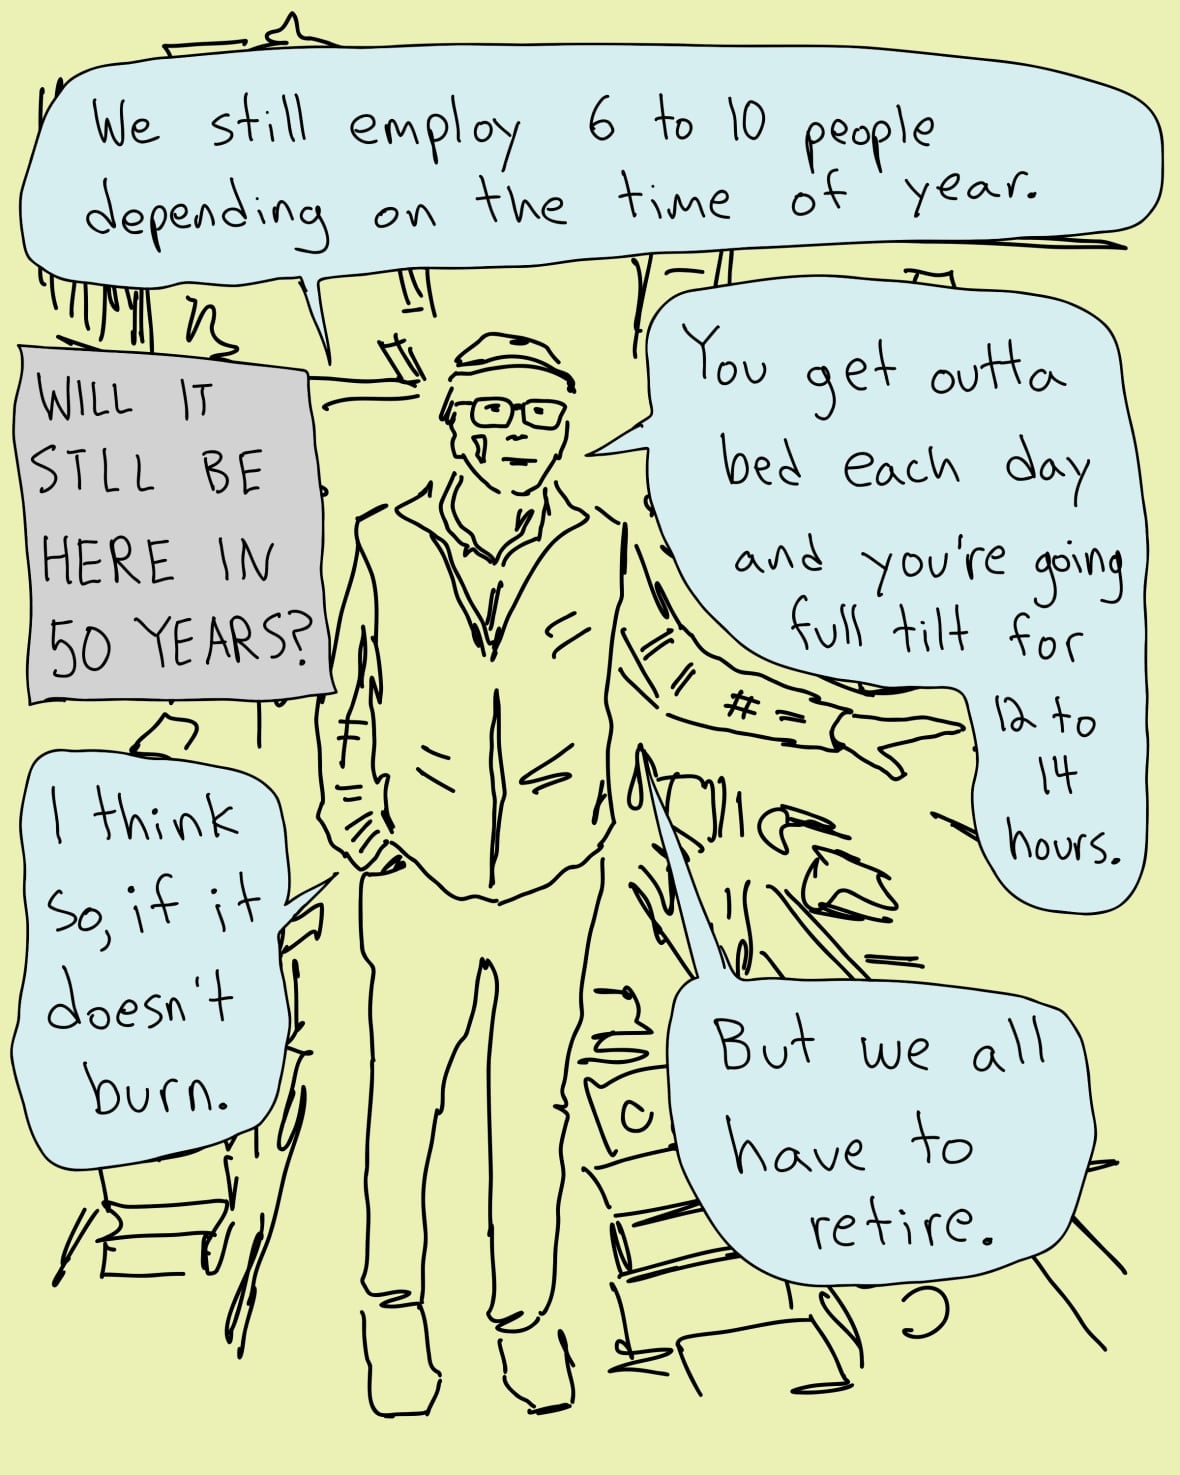 We still employ 6 to 10 people
depending on the time of year.
WILL IT
STLL BE
HERE IN
50 YEARS?
You get outta
bed each day
and you're going
full tilt for
12 to
14
hours.
I think
so, if it
doesn't
burn.
But we all
have to
retire.